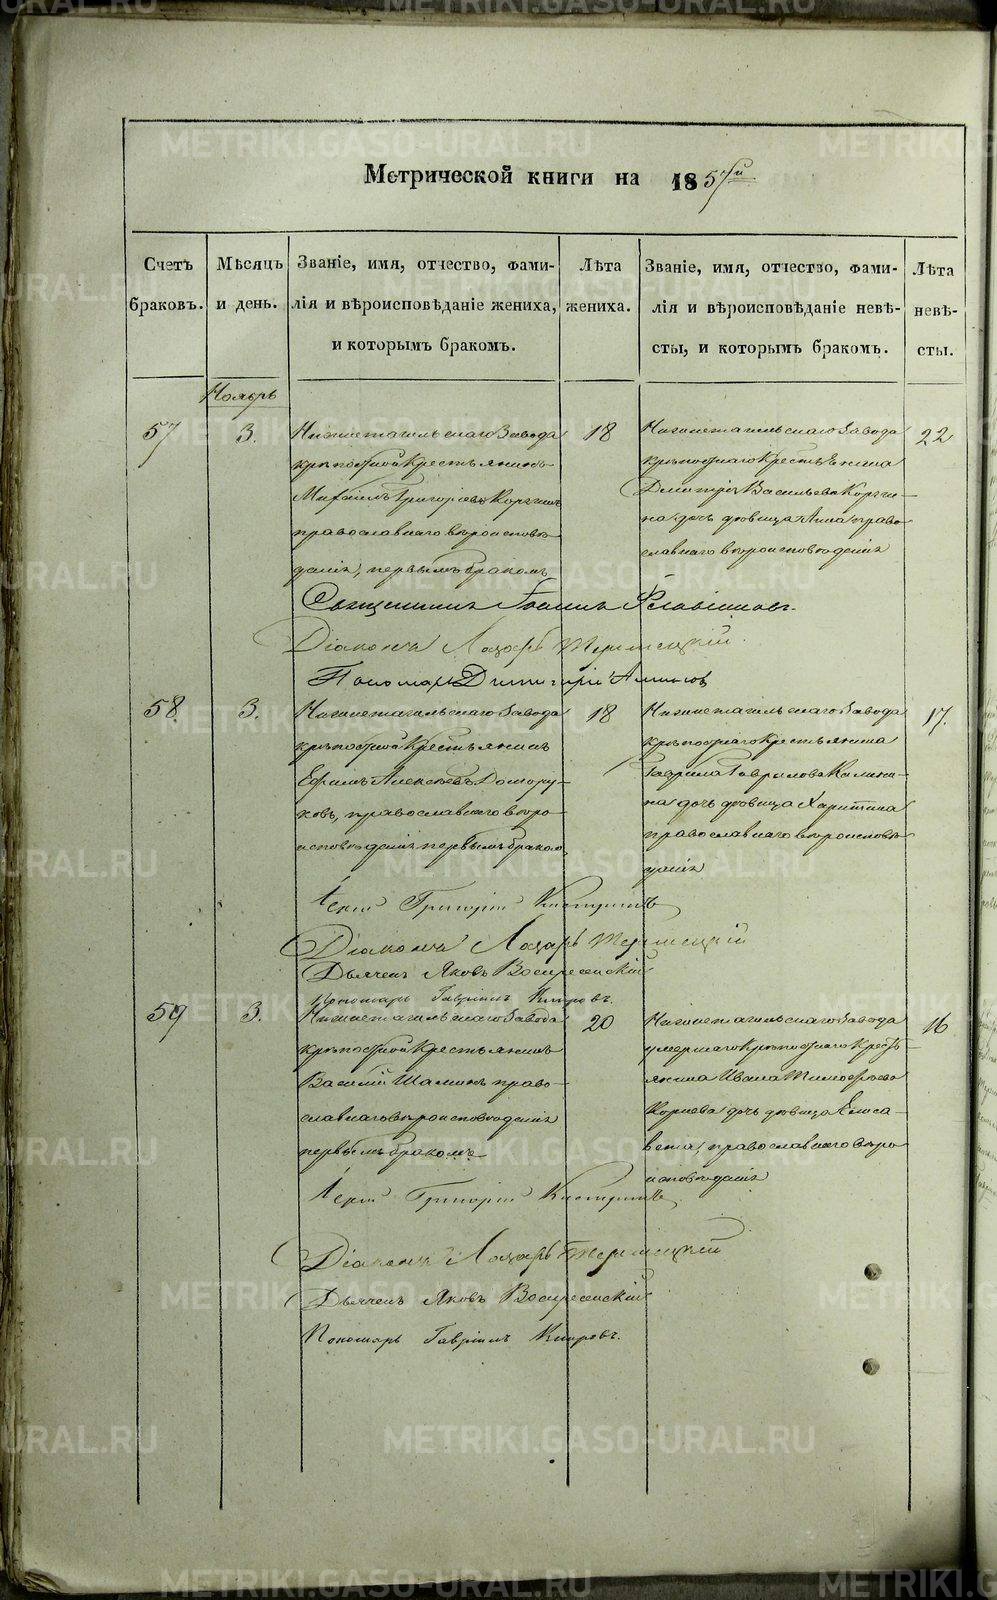 Метрической книги на 1857й
Счетъ браковъ.
Мѣсяцъ и день.
Званіе, имя, отчество, фами-
лія и вѣроисповѣданіе жениха,
и которымъ бракомъ.
Лѣта жениха.
Званіе, имя, отчество, фами-
лія и вѣроисповѣданіе невѣ-
сты, и которымъ бракомъ.
Лѣта невѣ-
сты.
Ноябрь
57
3.
Нижнетагильскаго Завода
крѣпостной Крестьянинъ
Михаилъ Григорьевъ
православнаго вѣроисповѣ
данія, первымъ бракомъ
18
Нижнетагильскаго Завода
крѣпостнаго Крестьянина
Димитрія Васильева
на дочь дѣвица Анна право
славнаго вѣроисповѣданія
22
Священникъ Іоаннъ Флавіановъ.
Діаконъ Лазарь
Пономарь Димитрій
58
3.
Нижнетагильскаго Завода
крѣпостной Крестьянинъ
Ефимъ Алексѣевъ
ковъ, православнаго вѣро
исповѣданія первымъ бракомъ
18
Нижнетагильскаго Завода
крѣпостнаго Крестьянина
Гаврила Гаврилова Калини-
на дочь дѣвица Харитина
православнаго вѣроисповѣ
данія
17.
Іерей Григорій
Діаконъ Лазарь
Дьячекъ Яковъ Воскресенскій
Пономарь Гавріилъ Кипровъ.
59
3.
Нижнетагильскаго Завода
крѣпостной Крестьянинъ
Василій Шаминъ право
славнаго вѣроисповѣданія
первымъ бракомъ
20
Нижнетагильскаго Завода
умершаго Крѣпостнаго Кресть
янина Ивана Тимофѣева
Корнева дочь дѣвица Елиса-
вета, православнаго вѣро
исповѣданія
16
Іерей Григорій
Діаконъ Лазарь
Дьячекъ Яковъ Воскресенскій
Пономарь Гавріилъ Кипровъ.
METRIKI.GASO-URAL.RU